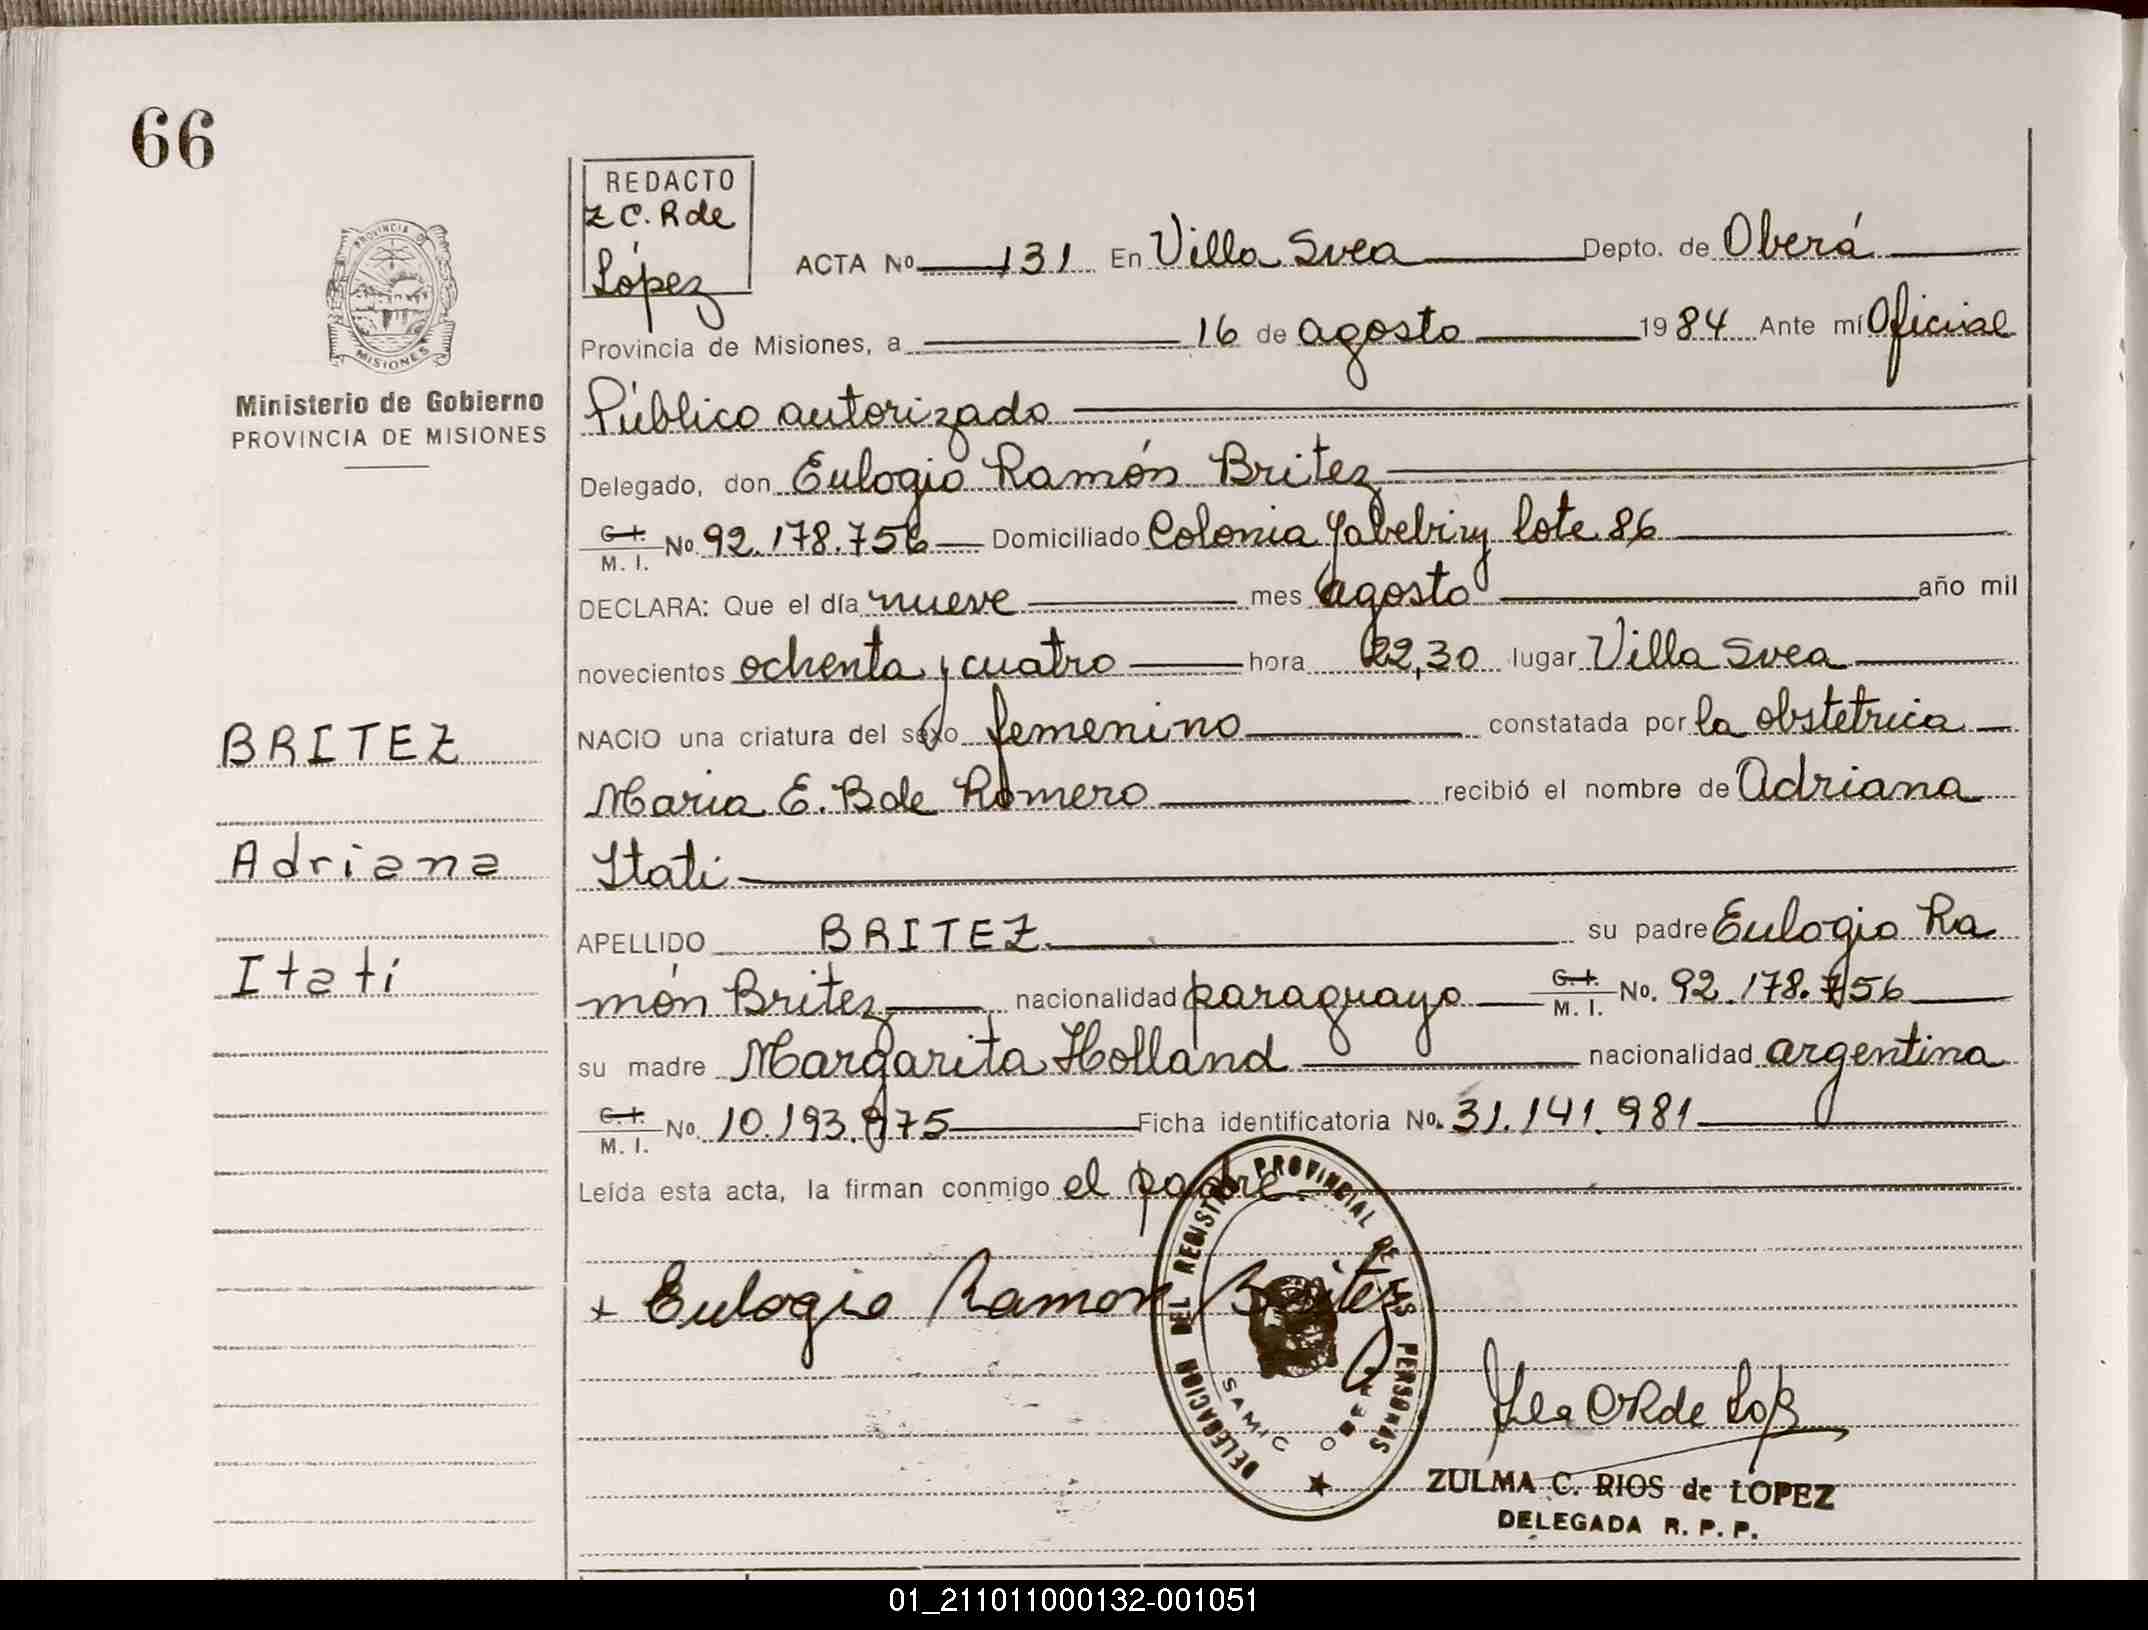 66
PROVINCIA DE
MISIONES
Ministerio de Gobierno
PROVINCIA DE MISIONES
REDACTO
Z C. R de
López
ACTA No 131 En Villa Svea Depto. de Oberá
Provincia de Misiones, a 16 de agosto 1984 Ante mí Oficial
Público autorizado
Delegado, don Eulogio Ramón Britez
C. I. M. I. No. 92.178.756 Domiciliado Colonia Yabebiry lote 86
DECLARA: Que el día nueve mes agosto año mil
novecientos ochenta y cuatro hora 22,30 lugar Villa Svea
NACIO una criatura del sexo femenino constatada por la obstetrica
Maria E. B de Romero recibió el nombre de Adriana
Itati
APELLIDO BRITEZ su padre Eulogio Ra
món Britez nacionalidad paraguayo C. I. M. I. No. 92.178.756
su madre Margarita Holland nacionalidad argentina
C. I. M. I. No. 10.193.975 Ficha identificatoria No. 31.141.981
Leída esta acta, la firman conmigo el padre
BRITEZ
Adriana
Itatí
x Eulogio Ramon Britez
DELEGACION DEL REGISTRO PROVINCIAL DE LAS PERSONAS
SAMIC O
ZULMA C. RIOS de LOPEZ
DELEGADA R. P. P.
01_211011000132-001051